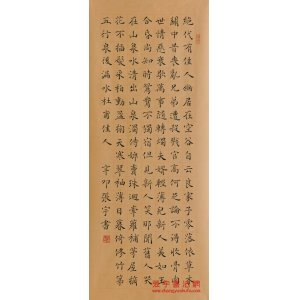 絕代有佳人幽居在空谷自云良家子零落依草木
關中昔喪亂兄弟遭殺戮官高何足論不得收骨肉
世情惡衰歇萬事隨轉燭夫婿輕薄兒新人美如玉
合昏尚知時鴛鴦不獨宿但見新人笑那聞舊人哭
在山泉清出山泉水濁侍婢賣珠迴牽蘿補茅屋摘
花不插髮采柏動盈掬天寒翠袖薄日暮倚修竹第
五行泉後漏水杜甫佳人 辛卯張宇書